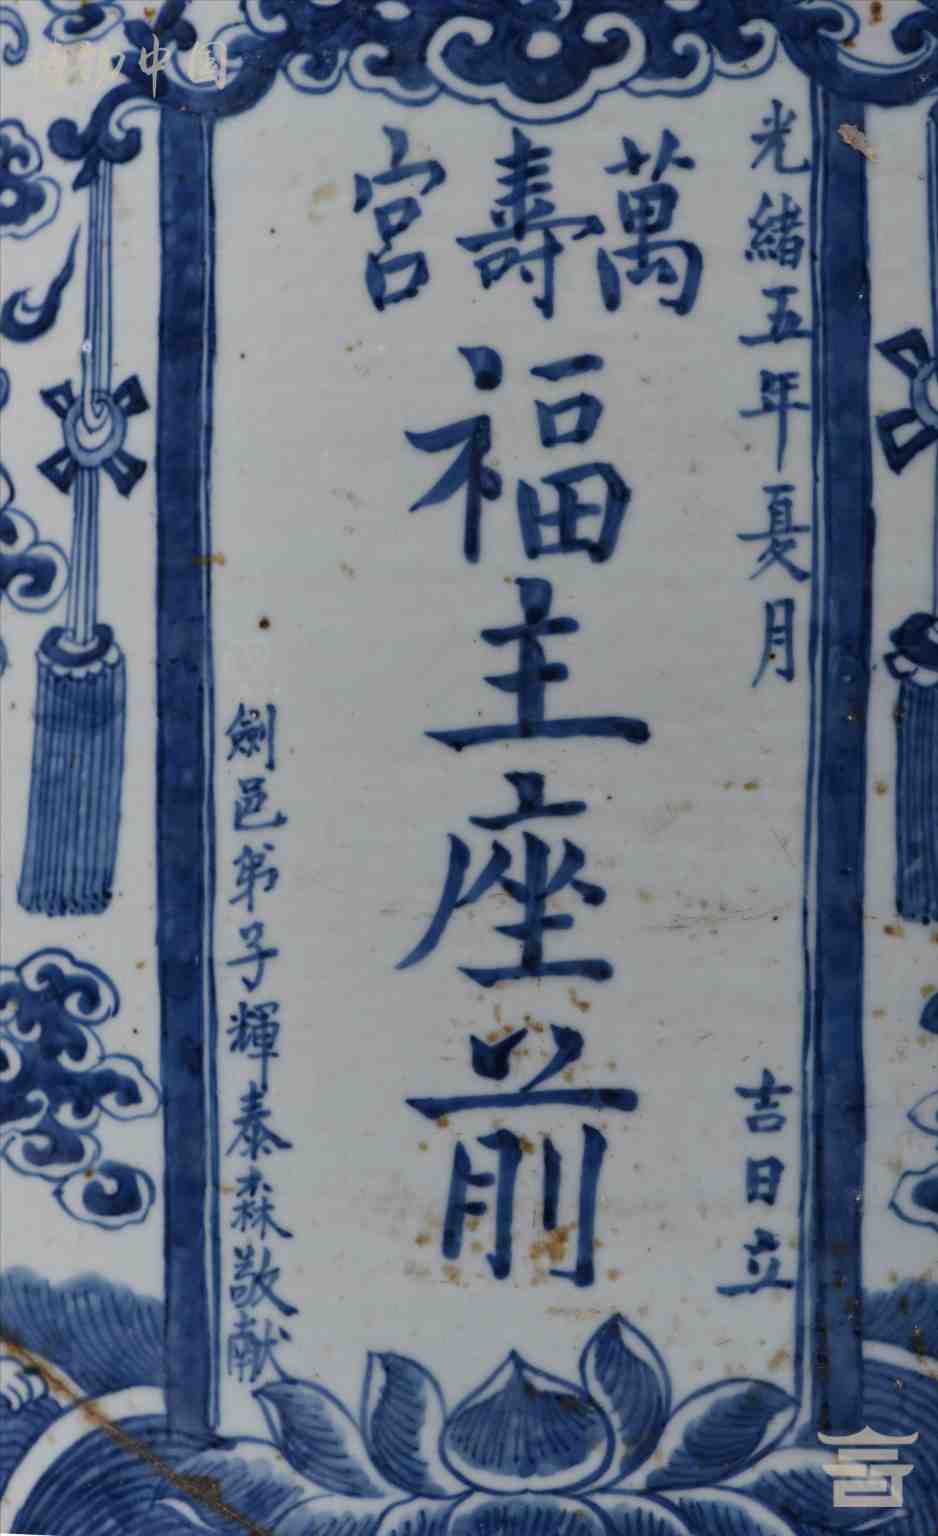 光緒五年夏月 吉日立
萬壽宮
福主座前
劍邑弟子輝泰森敬献
中国